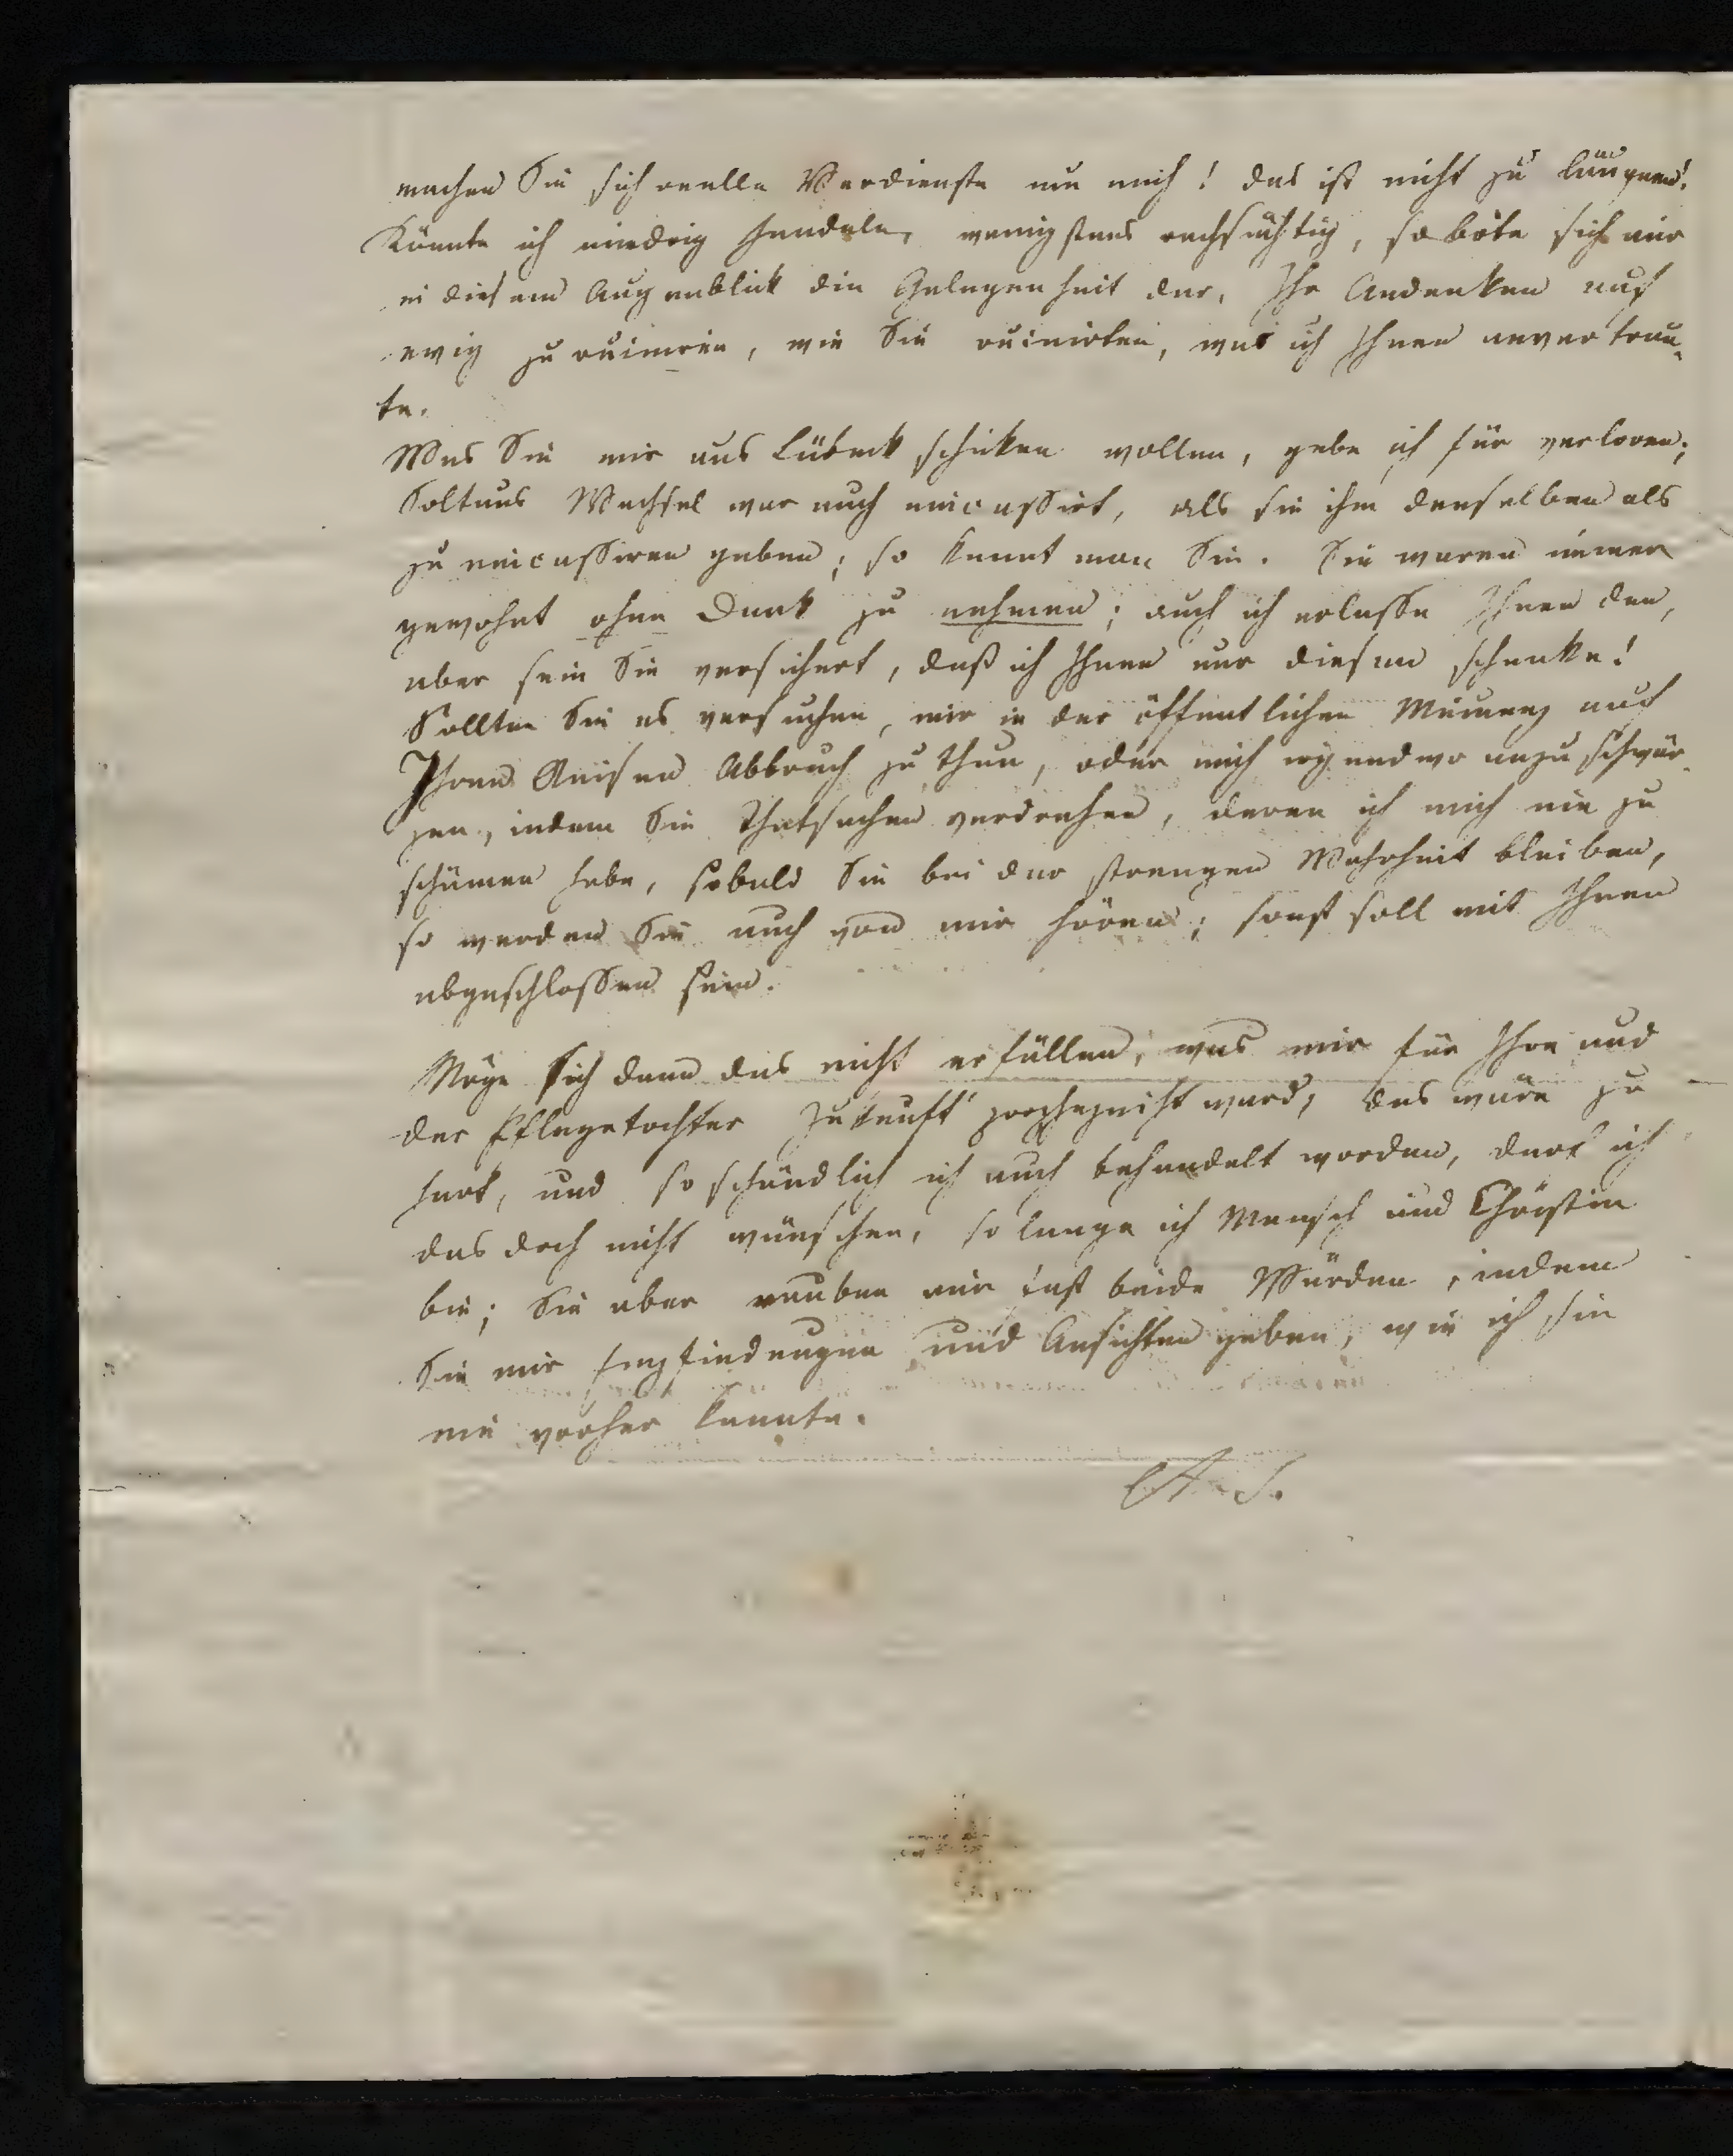 machen Sie sich reelle Verdienste um mich! das ist nicht zu läugnen!
Könnte ich niedrig handeln, wenigstens rachsüchtig, so böte sich mir
in diesem Augenblick die Gelegenheit dar, Ihr Andenken auf
ewig zu ruiniren, wie Sie ruinirten, was ich Ihnen anvertrau-
te.
Was Sie mir aus Lübeck schicken wollen, gebe ich für verloren;
Soltaus Wechsel war auch eincassirt, als sie ihm denselben als
zu eincassiren gaben; so kennt man Sie. Sie waren immer
gewohnt ohne Dank zu nehmen; auch ich erlasse Ihnen den,
aber sein Sie versichert, daß ich Ihnen nur diesen schenke!
Sollten Sie es versuchen, mir in der öffentlichen Meinung auf
Ihren Reisen Abbruch zu thun, oder mich irgendwo anzuschwär-
zen, indem Sie Thatsachen verdrehen, deren ich mich nie zu
schämen habe, sobald Sie bei der strengen Wahrheit bleiben,
so werden Sie auch von mir hören; sonst soll mit Ihnen
abgeschlossen sein.
Möge sich dann das nicht erfüllen, was mir für Ihre und
der Pflegetochter Zukunft prophezeiht ward; das wäre zu
hart, und so schändlich ich auch behandelt worden, darf ich
das doch nicht wünschen, so lange ich Mensch und Christin
bin; Sie aber rauben mir fast beide Würden, indem
Sie mir Empfindungen und Ansichten geben, wie ich sie
nie vorher kannte.
A. S.